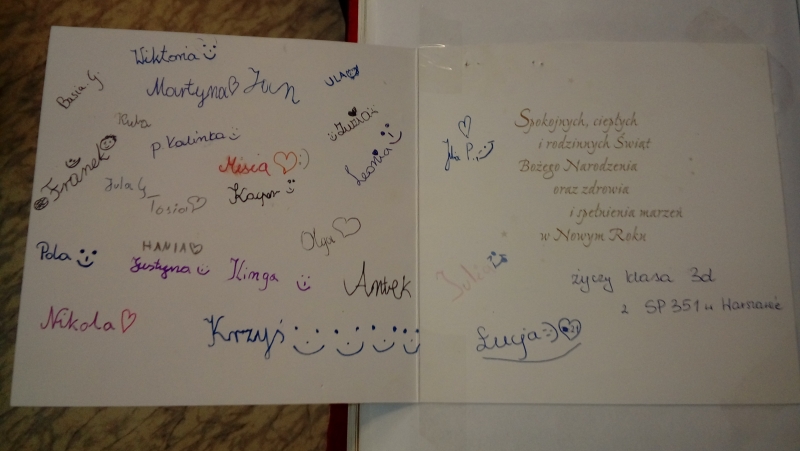 Wiktoria
Martyna Jun
ULA
Basia G.
Kuba
p. Kalinka
Zuzia
Leonia
Franek
Misia :)
Jula G
Tosia
Kacper
Olga
Pola
HANIA
Justyna
Kinga
Antek
Nikola
Krzyś
P.
Spokojnych, ciepłych
i rodzinnych Świąt
Bożego Narodzenia
oraz zdrowia
i spełnienia marzeń
w Nowym Roku
Julia
życzy klasa 3d
z SP 351 w Warszawie
Łucja :)